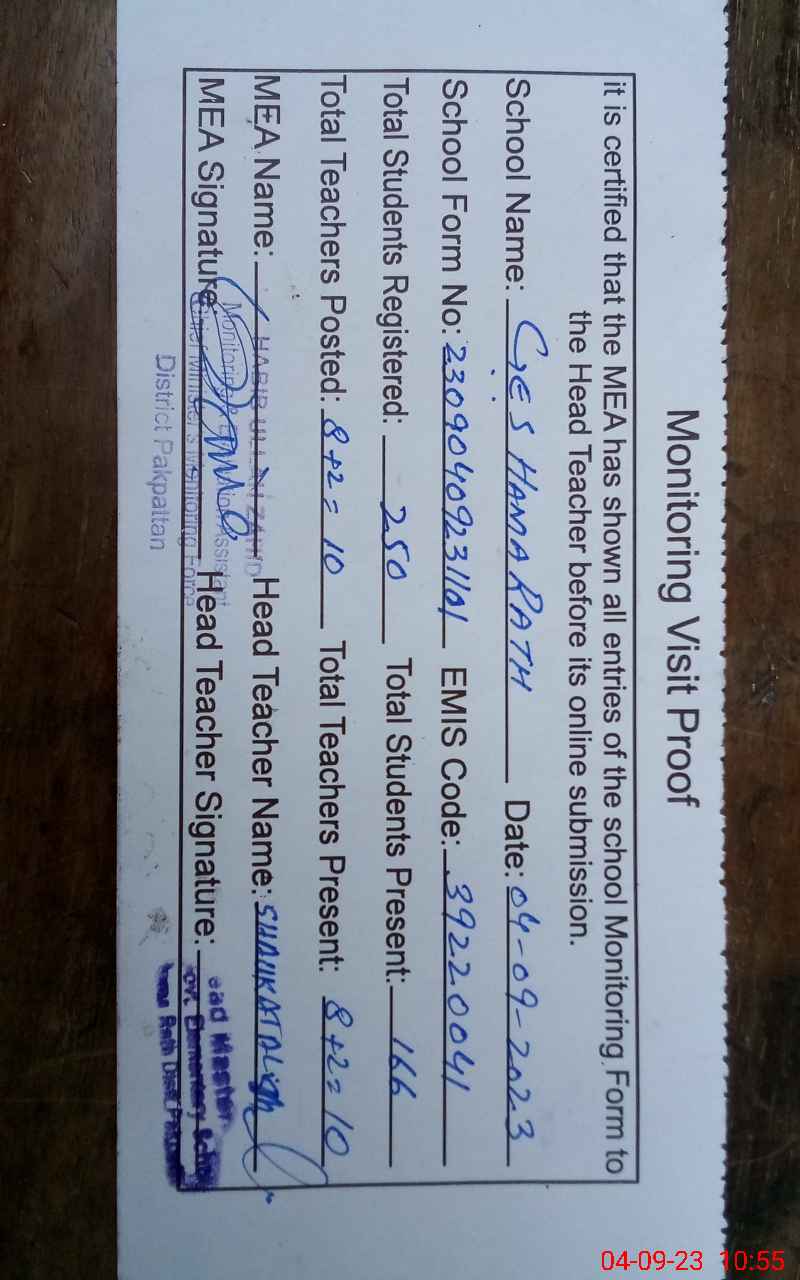 Monitoring Visit Proof
it is certified that the MEA has shown all entries of the school Monitoring Form to
the Head Teacher before its online submission.
School Name: GES HAMA RATH Date: 04-09-2023
School Form No: 23090409231101 EMIS Code: 39220041
Total Students Registered: 250 Total Students Present: 166
Total Teachers Posted: 8+2=10 Total Teachers Present: 8+2=10
MEA Name: HABIB ULLAH ZAHID Head Teacher Name: SHAUKAT ALI
MEA Signature: Head Teacher Signature:
Monitoring & Assistant
Chief Minister's Monitoring Force
District Pakpattan
ead Master
ovt. Elementary Scho
Rath Distt.
04-09-23 10:55